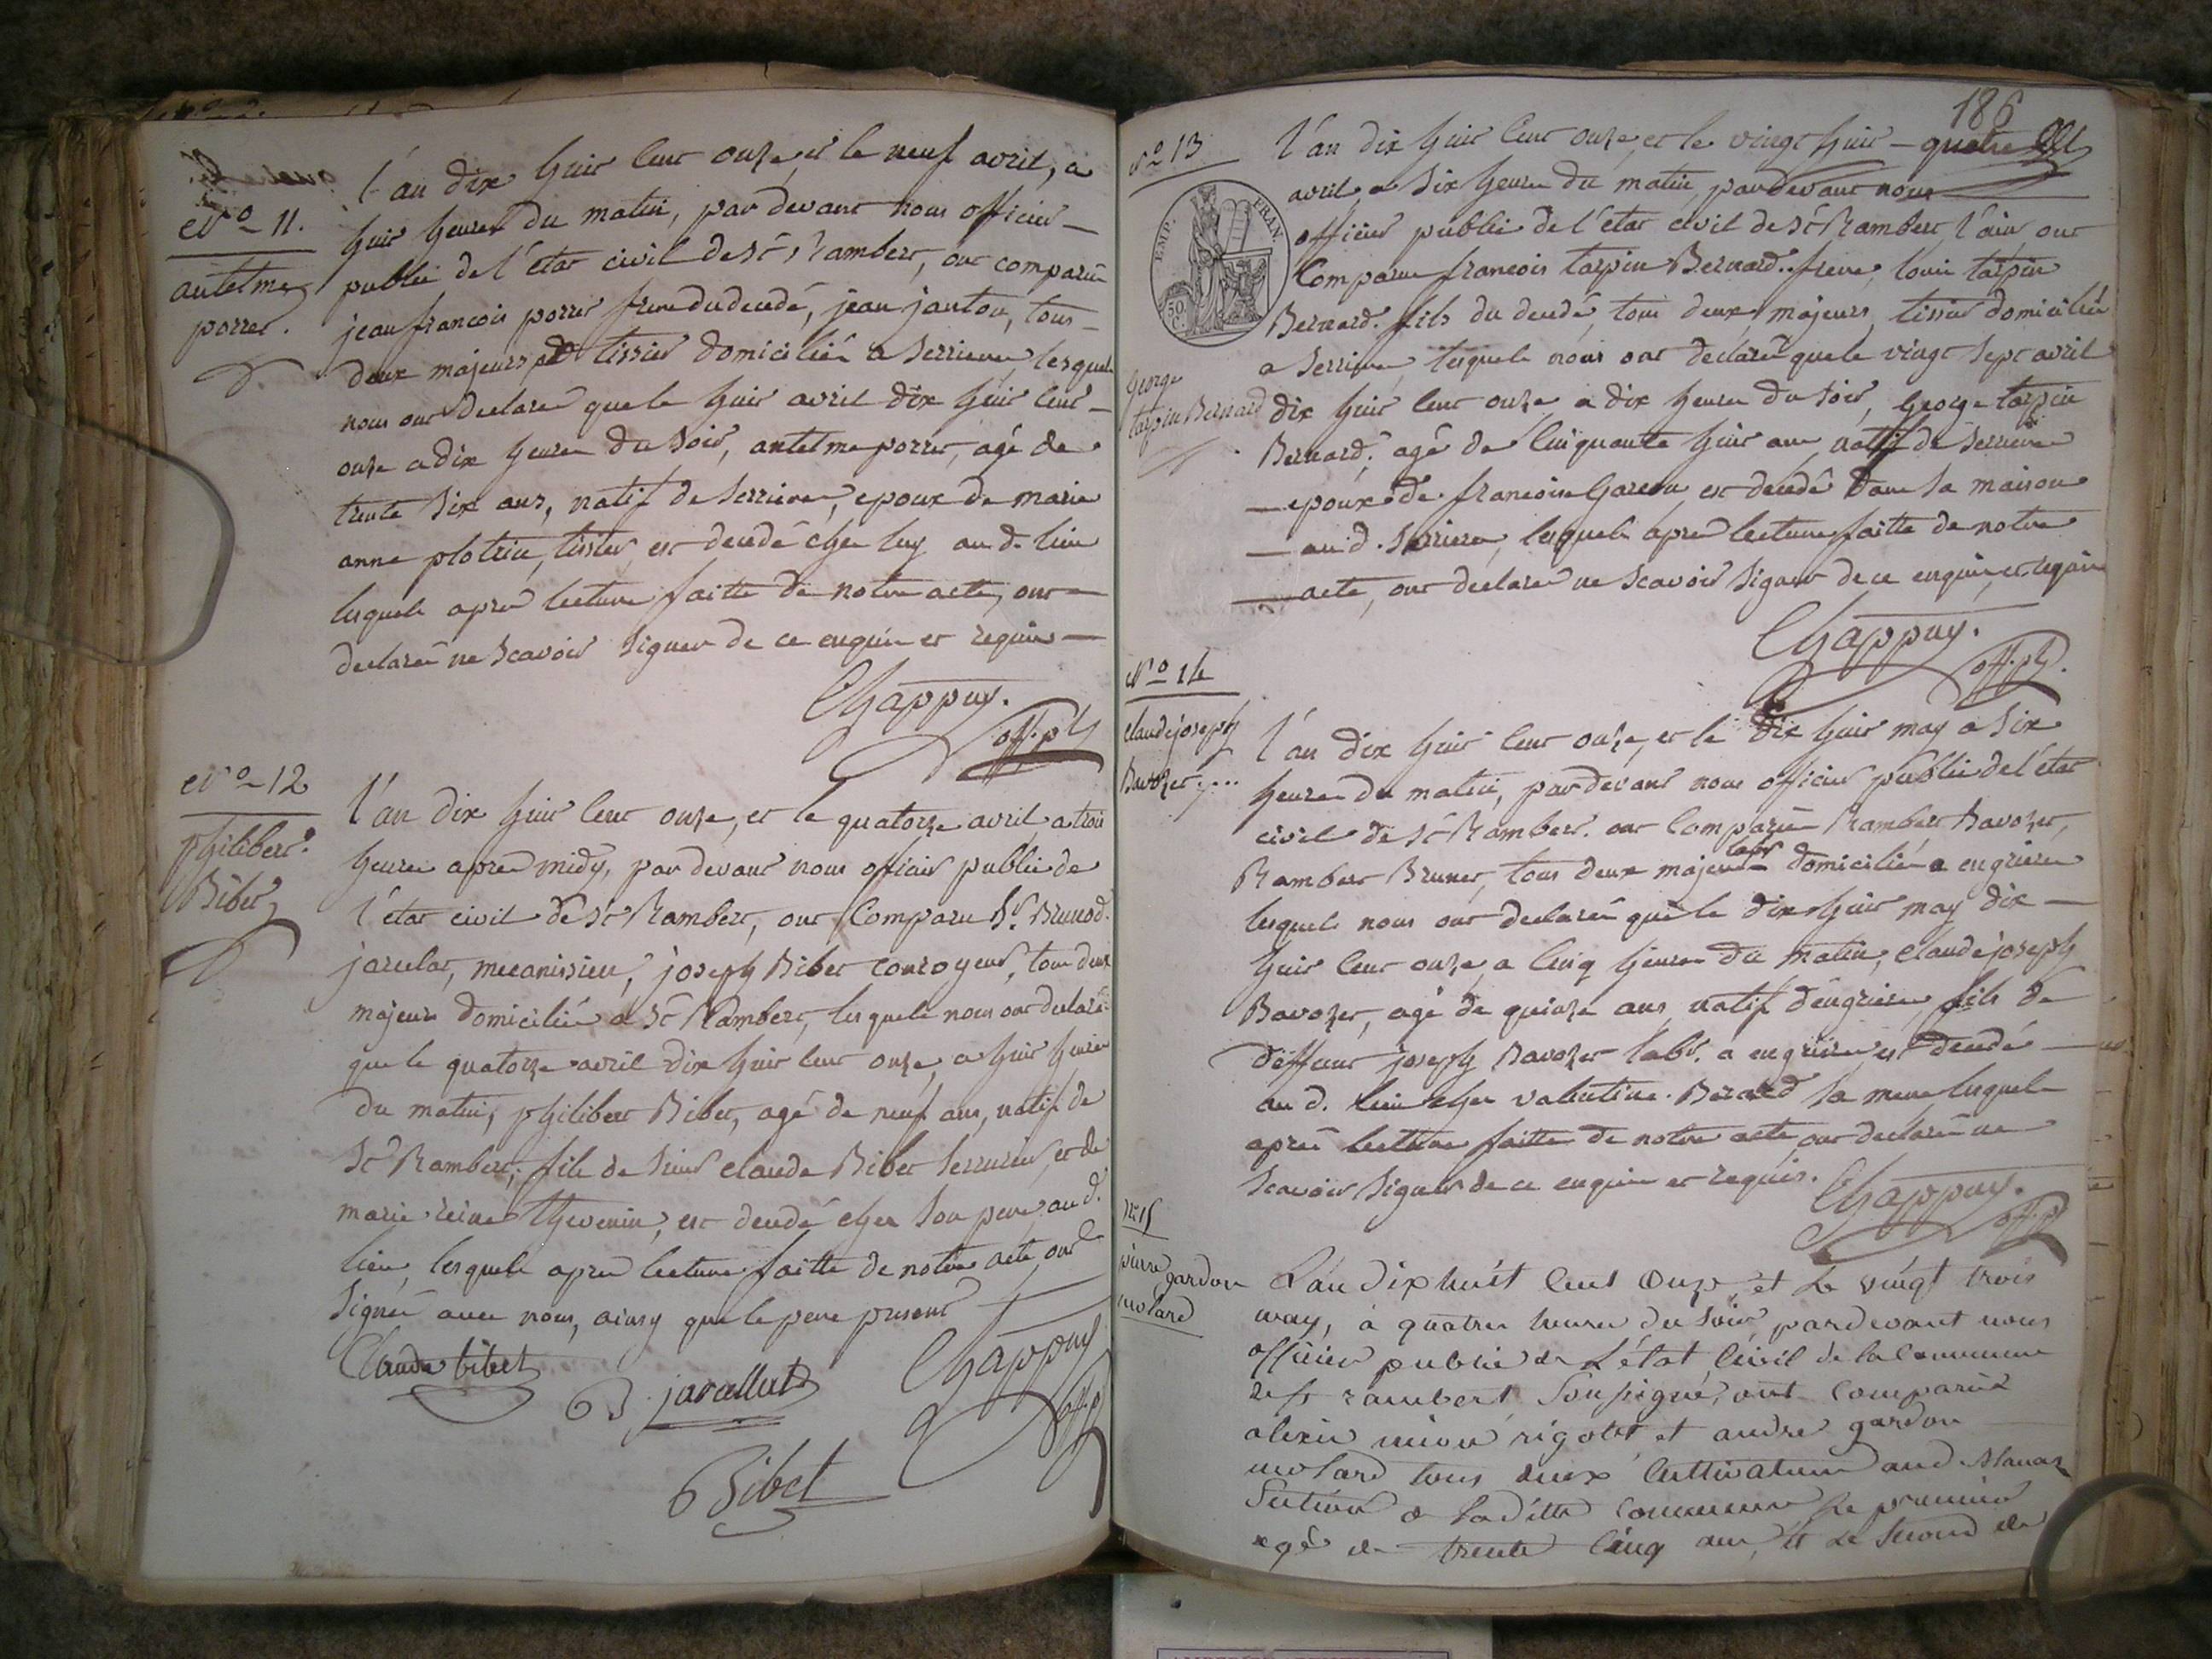 N.o 11.
antelme
porret.
l'an dix huit cent onze, et le neuf avril, a
huit heures du matin, par devant nous officier
public de l'etat civil de St Rambert, ont comparu
jean francois porret frere du decedé, jean janton, tous
deux majeurs tissier domicilié a Serriere, lesquels
nous ont declaré que le huit avril dix huit cent
onze a dix heures du soir, antelme porret, agé de
trente six ans, natif de Serriere, epoux de marie
anne plotrin, tissier, est decedé chez luy au d. lieu
lesquels apres lecture faitte de notre acte, ont
declaré ne scavoir signer de ce enquis et requis
Chappuy.
off. p
N.o 12
philibert
Bibet
l'an dix huit cent onze, et le quatorze avril a trois
heures apres midy, par devant nous officier public de
l'etat civil de St Rambert, ont comparu Sr. Brunod
jarelat, mecanissien, joseph Bibet couroyeur, tous deux
majeurs domicilié a St Rambert, lesquels nous ont declaré
que le quatorze avril dix huit cent onze, a huit heures
du matin, philibert Bibet, agé de neuf ans, natif de
St Rambert, fils de Sieur claude Bibet serrurier, et de
marie reine thevenin, est decedé chez son pere au d.
lieu, lesquels apres lecture faitte de notre acte ont
signé avec nous, ainsy que le pere present
Claude bibet
B. jarallat
Chappuy
off. p
Bibet
186
N.o 13
EMP. FRAN.
50 C.
george
tarpin Bernard
l'an dix huit cent onze, et le vingt huit quatre
avril, a six heures du matin, pardevant nous
officier public de l'etat civil de St Rambert, l'ain, ont
comparu francois tarpin Bernard. frere, louis tarpin
Bernard. fils du decedé, tous deux majeurs, tissier domicilié
a Serriere, lesquels nous ont declaré que le vingt sept avril
dix huit cent onze, a dix heures du soir, george tarpin
Bernard, agé de cinquante huit ans, natif de Serriere
epoux de francoise, est decedé dans sa maison
au d. Serriere, lesquels apres lecture faitte de notre
acte, ont declaré ne scavoir signer de ce enquis et requis
Chappuy.
off. p.
N.o 14
claude joseph
Bavozet
l'an dix huit cent onze, et le dix huit may a six
heures du matin, pardevant nous officier public de l'etat
civil de St Rambert. ont comparu Rambert Bavozet,
Rambert Brunet, tous deux majeurs labr domicilié a engrieres
lesquels nous ont declaré que le dix huit may dix
huit cent onze, a cinq heures du matin, claude joseph
Bavozet, agé de quinze ans, natif d'engrieres, fils de
deffunt joseph Bavozet labr. a engrieres est decedé
au d. lieu chez valentine. Berard sa mere lesquels
apres lecture faitte de notre acte ont declaré ne
scavoir signer de ce enquis et requis.
Chappuy.
off. p
No. 15
pierre gardon
molard
L'an dix huit cent onze, et le vingt trois
may, à quatre heures du soir, pardevant nous
officier public de L'état civil de la commune
de st rambert soussigné, ont comparu
alexis miou rigotet et andré gardon
molard tous deux cultivateurs au d.
section de laditte commune le premier
agé de trente cinq ans, et le second de